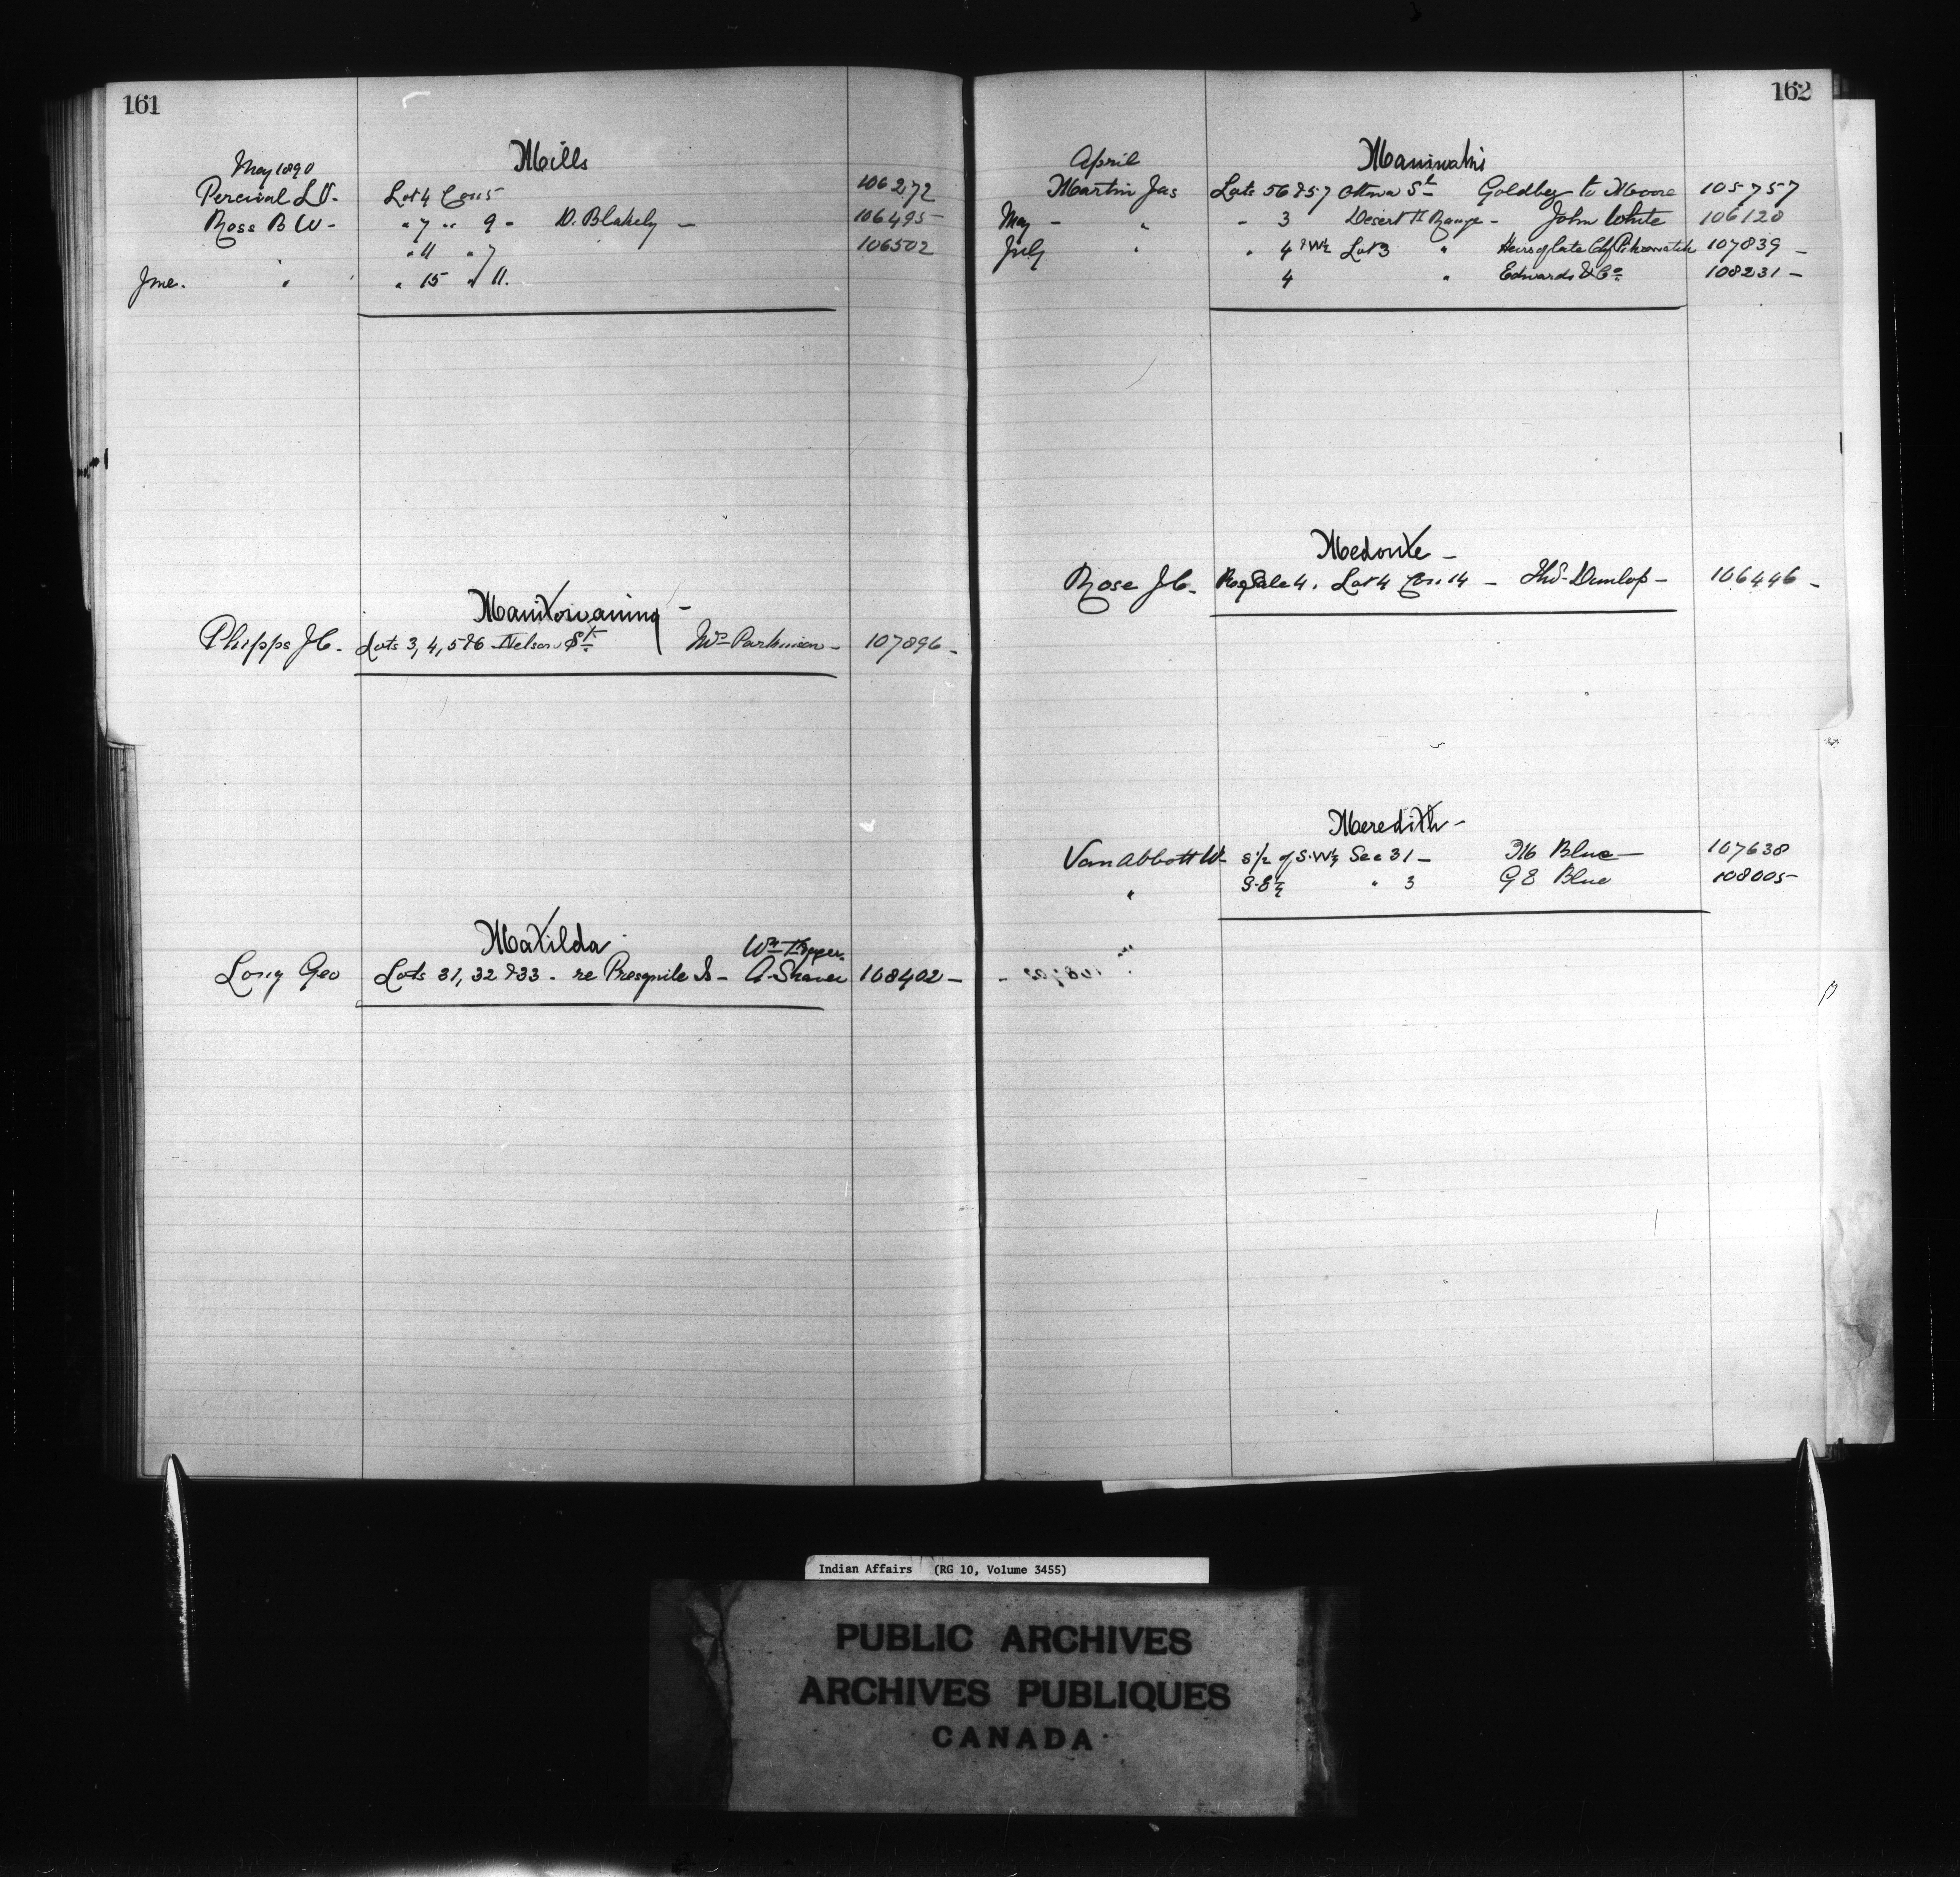 161
Mills
May 1890
Percival L V. Lot 4 Con 5 106272
Ross B W - " 7 " 9 - D. Blakely - 106495
" 11 " 7 106502
June. " " 15 " 11.
Manitowaning -
Phipps J C. Lots 3, 4, 5 & 6 Nelson St. Parkinson - 107896 -
Matilda
Long Geo Lots 31, 32 & 33 - re Presquile Is - Wm
A. Shaver 108402 -
162
April Maniwaki
Martin Jas Lots 56 & 57 Ottawa St Goldberg to Moore 105757
May - " - 3 Desert Range - John White 106120
July " " 4 & W½ Lot 3 " Heirs of late 107839 -
4 " Edwards & Co. 108231 -
Medonte -
Rose J C. Lot 4 Con. 14 - Thos. Dunlop - 106446 -
Meredith -
Van Abbott W. S½ of S.W¼ Sec 31 - Blue - 107638
" S.E¼ " 3 G E Blue 108005
Indian Affairs (RG 10, Volume 3455)
PUBLIC ARCHIVES
ARCHIVES PUBLIQUES
CANADA